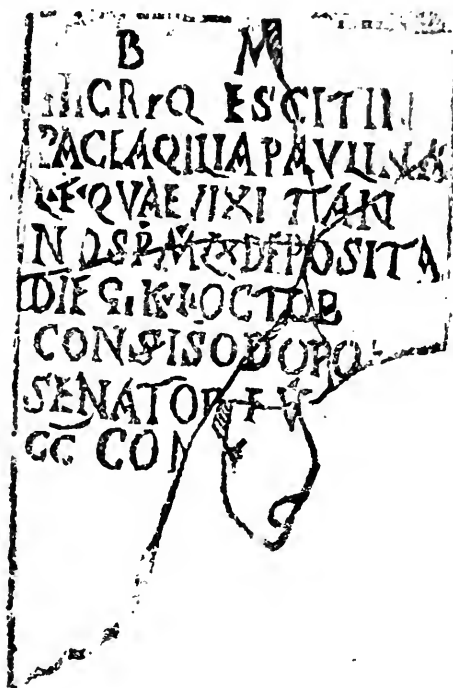 B M
HICRIQ ESCITIN
PACEAQILIAPAVLINA
QVAE VIXI TAN
DEPOSITA
DIE OCTOB
CONS ISODORO
SENATOR
CC CON